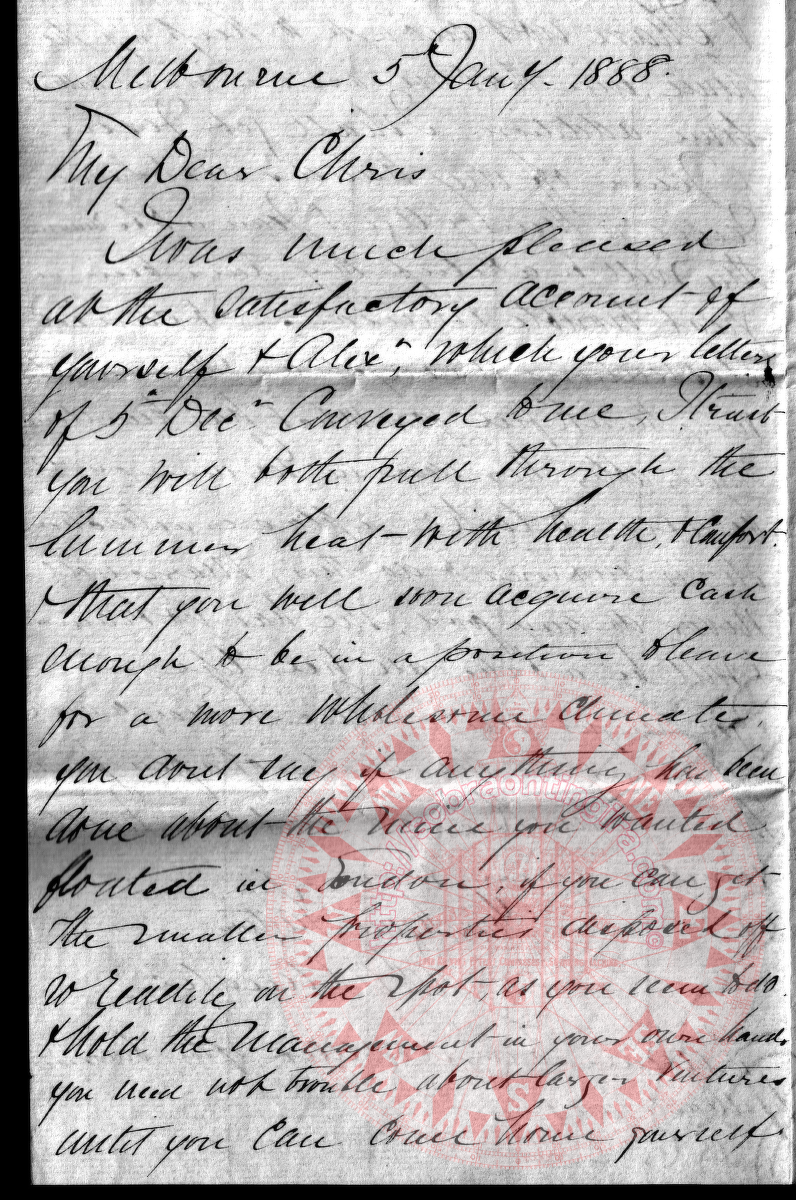 Melbourne 5th Jany. 1888.
My Dear Chris
I was much pleased
at the satisfactory account of
yourself & Alexr, which your letter
of 5th Decr Conveyed to me, I trust
you will both pull through the
Summer heat with health, & Comfort.
& that you will soon acquire Cash
enough to be in a position to leave
for a more wholesome Climate.
you dont say if anything has been
done about the mine you wanted
floated in London, if you can get
the smaller properties disposed off
so readily on the spot, as you seem to do
& hold the Management in your own hands
you need not trouble about larger Ventures
until you Can Come home yourself